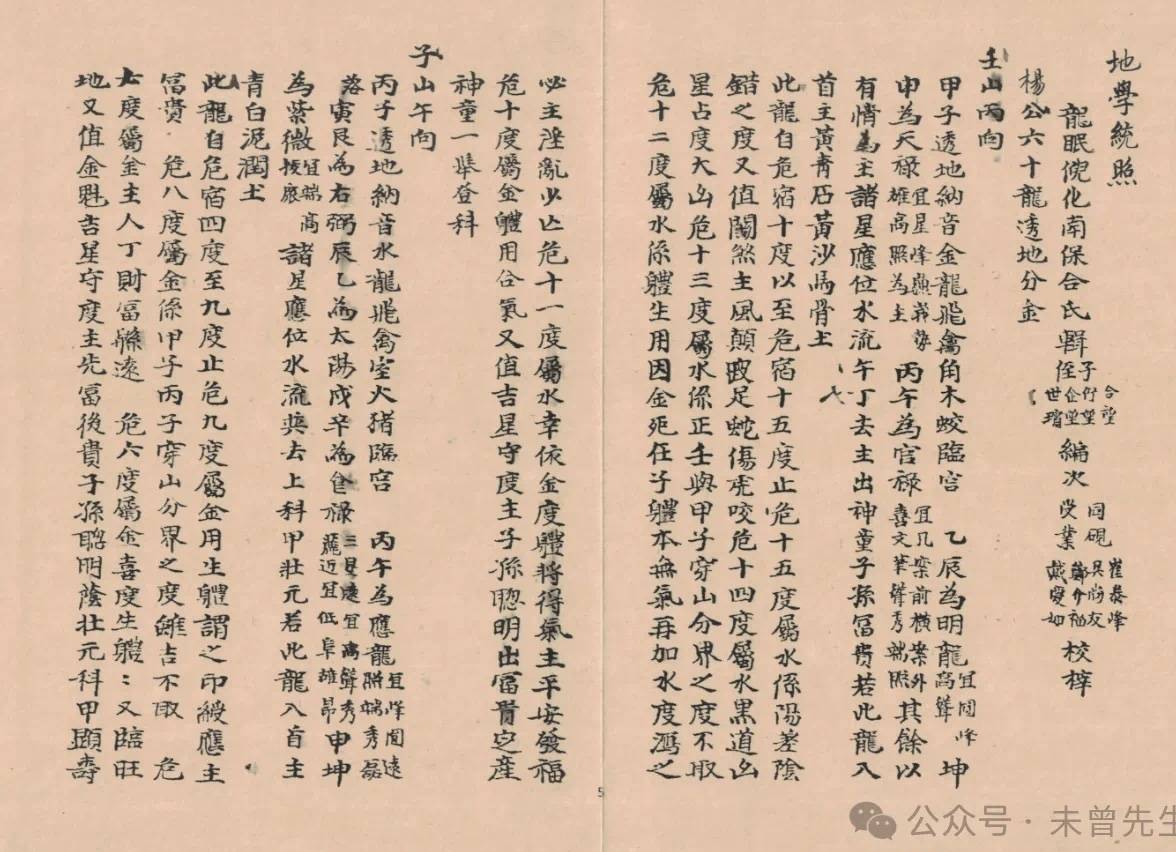 地學統照
龍眠倪化南保合氏輯 子侄 合望 行望 企望 世瑨 編次 同硯 受業 崔泰峰 吳尚友 校梓
楊公六十龍透地分金
壬山丙向
甲子透地納音金龍飛禽角木蛟臨宮 乙辰為明龍 宜圓峰高聳 坤
申為天祿 宜星峰 雄高照為主 丙午為官祿 宜几案前橫案外喜文筆聳秀端照 其餘以
有情為主諸星應位水流午丁去主出神童子孫富貴若此龍入
首主黃青石黃沙 骨土
此龍自危宿十度以至危宿十五度止危十五度屬水係陽差陰
錯之度又值關煞主風顛跛足蛇傷虎咬危十四度屬水黑道凶
星占度大凶危十三度屬水係正壬與甲子穿山分界之度不取
危十二度屬水係體生用因金死在子體本無氣再加水度瀉之
必主淫亂少亡危十一度屬水幸依金度體將得氣主平安發福
危十度屬金體用合氣又值吉星守度主子孫聰明出富貴定產
神童一舉登科
子山午向
丙子透地納音水龍飛禽室火猪臨宮 丙午為應龍 宜峰圓遠照端秀磊
落寅艮為右弼辰乙為太陽戌辛為食祿 三見遠宜高聳秀麗近宜低阜雄昂 申坤
為紫微 宜端高 諸星應位水流巽去上科甲壯元若此龍入首主
青白泥潤土
此龍自危宿四度至九度止危九度屬金用生體謂之印綬應主
富貴 危八度屬金係甲子丙子穿山分界之度雖吉不取 危
七度屬金主人丁財富綿遠 危六度屬金喜度生體又臨旺
地又值金魁吉星守度主先富後貴子孫聰明蔭壯元科甲顯壽
5
公众号 · 未曾先生